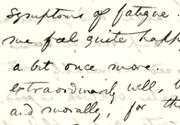 Symptoms of fatigue.
me feel quite happ
a bit once more.
extraordinarily well, b
and morally, for th